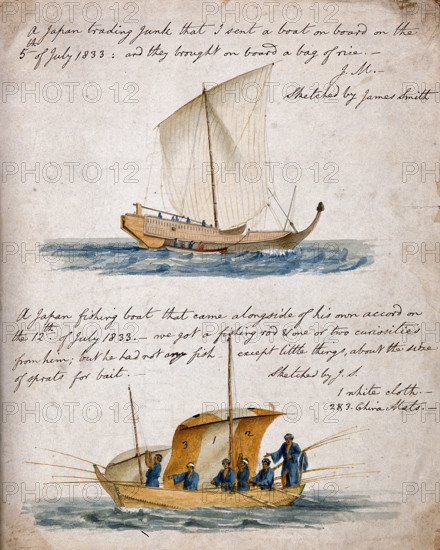 A Japan trading Junk that I sent a boat on board on the
5th of July 1833: and they brought on board a bag of rice. —
J. M. —
Sketched by James Smith
A Japan fishing boat that came alongside of his own accord on
the 12th of July 1833. — we got a fishing rod & one or two curiosities
from him; but he had not any fish except little things, about the size
of sprats for bait.
Sketched by J. S.
1 white cloth. —
2 & 3. China Mats. —
3
1
2
PHOTO 12